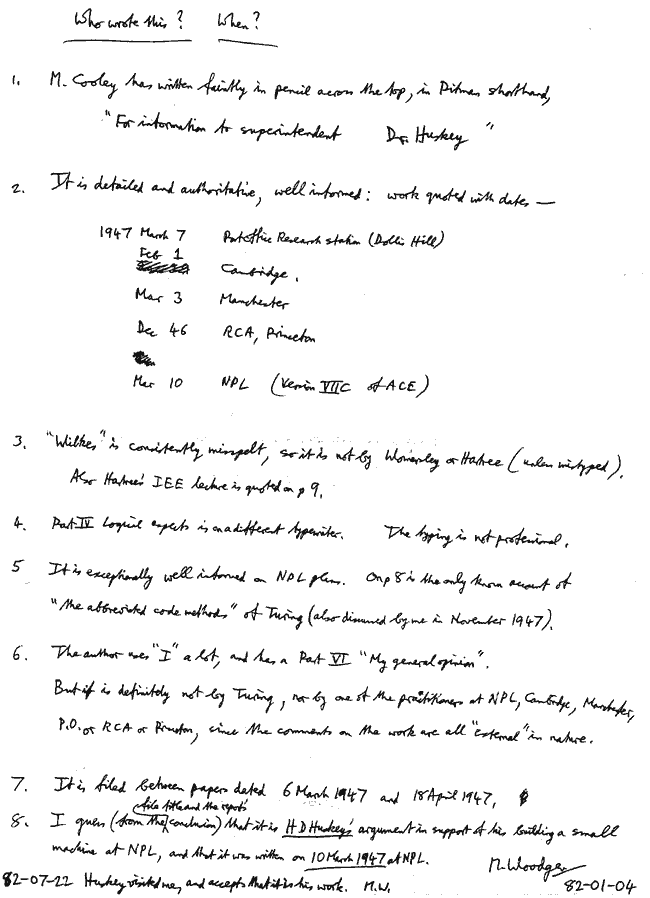 Who wrote this? When?
1. M. Cooley has written faintly in pencil across the top, in Pitman shorthand,
"For information to superintendent Dr. Huskey"
2. It is detailed and authoritative, well informed: work quoted with dates —
1947 March 7 Post Office Research station (Dollis Hill)
Feb 1
Cambridge.
Mar 3 Manchester
Dec 46 RCA, Princeton
Mar 10 NPL (Version VIIC of ACE)
3. "Wilkes" is consistently misspelt, so it is not by Womersley or Hartree (unless mistyped).
Also Hartree's IEE lecture is quoted on p 9.
4. Part IV Logical aspects is on a different typewriter. The typing is not professional.
5 It is exceptionally well informed on NPL plans. On p 8 is the only known account of
"the abbreviated code methods" of Turing (also discussed by me in November 1947).
6. The author uses "I" a lot, and has a Part VI "My general opinion".
But it is definitely not by Turing, nor by one of the practitioners at NPL, Cambridge, Manchester,
P.O. or RCA or Princeton, since the comments on the work are all "external" in nature.
7. It is filed between papers dated 6 March 1947 and 18 April 1947.
file title and the report's
8. I guess (from the conclusion) that it is H D Huskey's argument in support of his building a small
machine at NPL, and that it was written on 10 March 1947 at NPL.
M. Woodger
82-07-22 Huskey visited me, and accepts that it is his work. M.W. 82-01-04